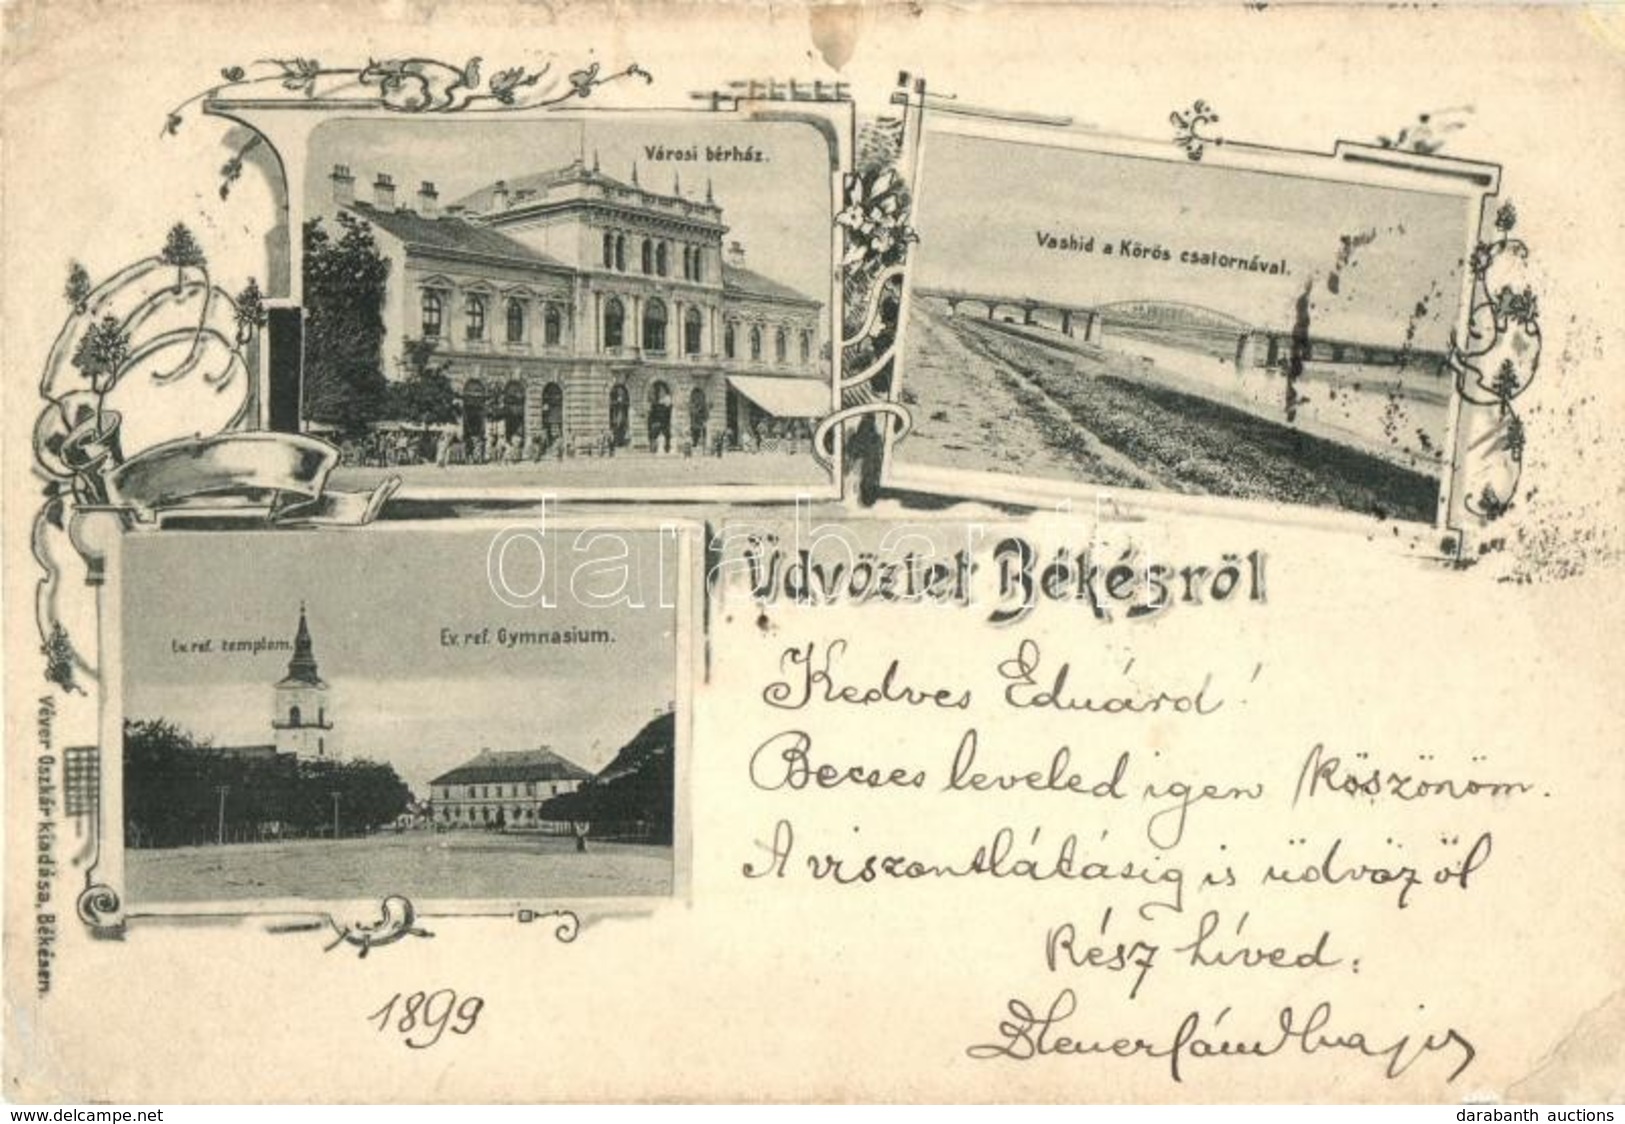 Városi bérház.
Vashid a Körös csatornával.
Ev. ref. templom.
Ev. ref. Gymnasium.
Üdvözlet Békésről
Kedves Eduárd!
Becses leveled igen köszönöm.
A viszontlátásig is üdvözöl
Rész híved:
1899
Véver Oszkár kiadása, Békésen.
darabanth
www.delcampe.net
darabanth auctions